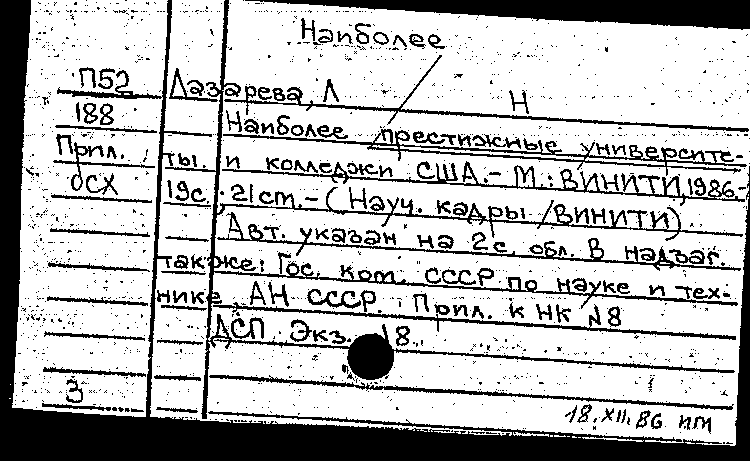 Наиболее
П52 Лазарева, Л Н
188 Наиболее престижные университе-
Прил. ты и колледжи США.- М.: ВИНИТИ, 1986.-
ОСХ 19с.; 21ст.- (Науч. кадры /ВИНИТИ)
Авт. указан на 2с. обл. В надзаг.
также: Гос. ком. СССР по науке и тех-
нике, АН СССР. Прил. к НК №8
ДСП Экз. 18
3
18.XII.86 нм